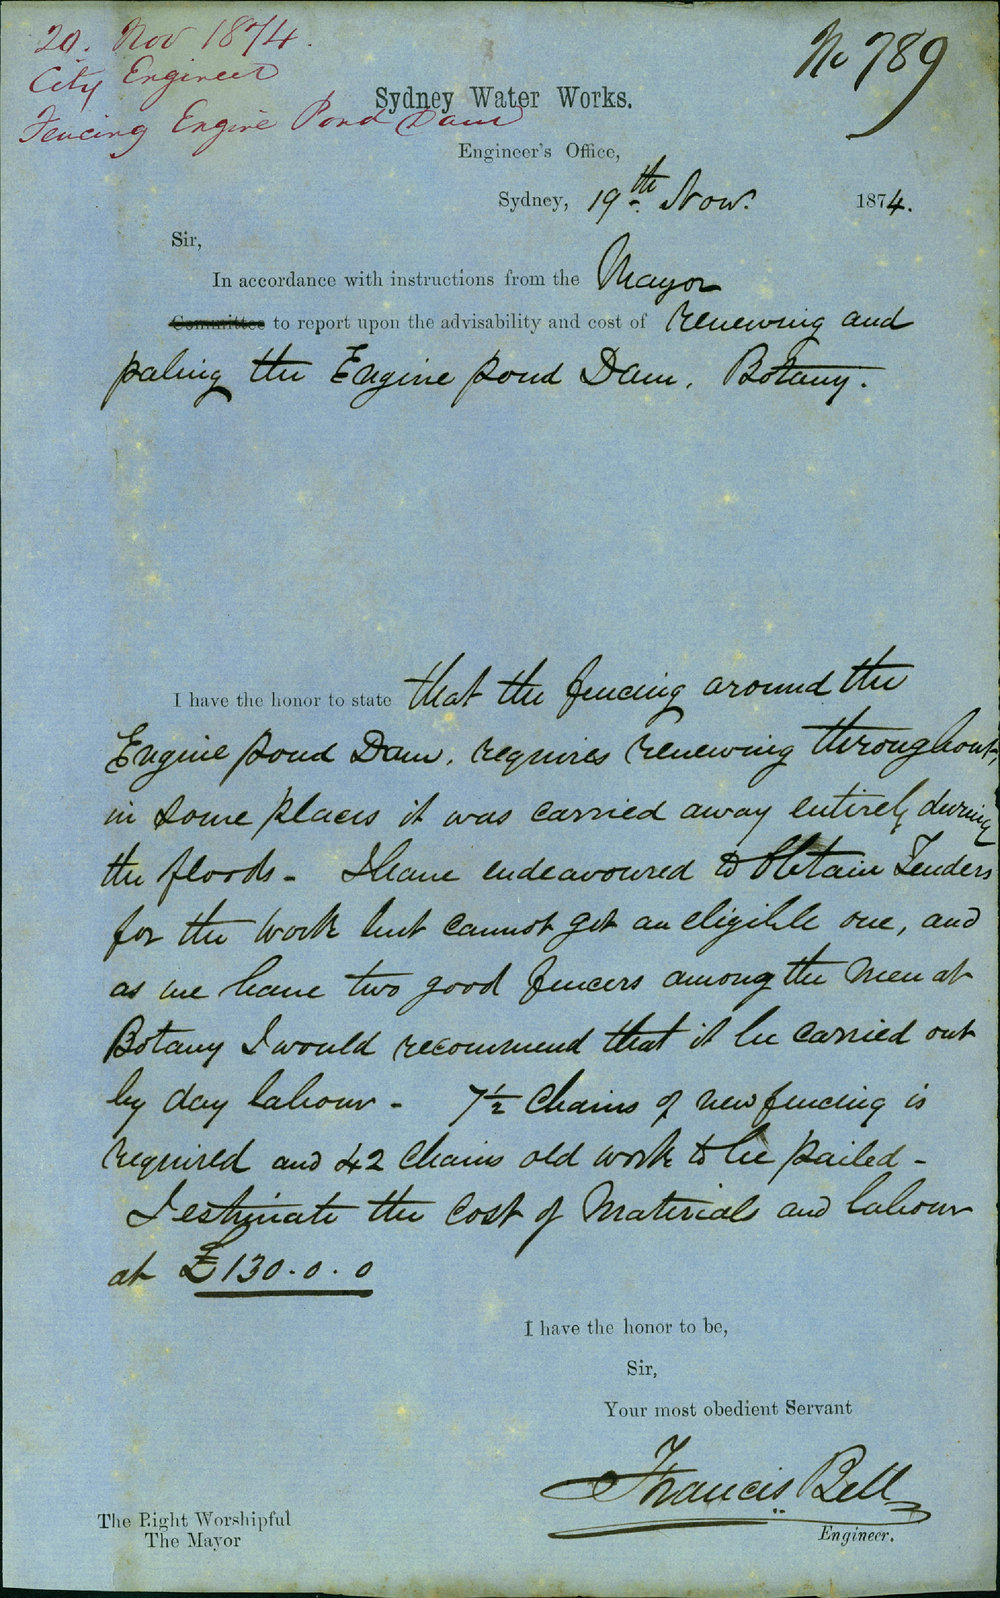 20. Nov 1874.
City Engineer
Fencing Engine Pond Dam
No 789
Sydney Water Works.
Engineer's Office,
Sydney, 19th Nov. 1874.
Sir,
In accordance with instructions from the Mayor
Committee to report upon the advisability and cost of renewing and
paling the Engine pond Dam. Botany.
I have the honor to state that the fencing around the
Engine pond Dam, requires renewing throughout,
in some places it was carried away entirely during
the floods - I have endeavoured to obtain Tenders
for the work but cannot get an eligible one, and
as we have two good fencers among the men at
Botany I would recommend that it be carried out
by day labour - 7½ Chains of new fencing is
required and 42 Chains old work to be pailed -
I estimate the cost of Materials and labour
at £130.0.0
I have the honor to be,
Sir,
Your most obedient Servant
Francis Bell
Engineer.
The Right Worshipful
The Mayor